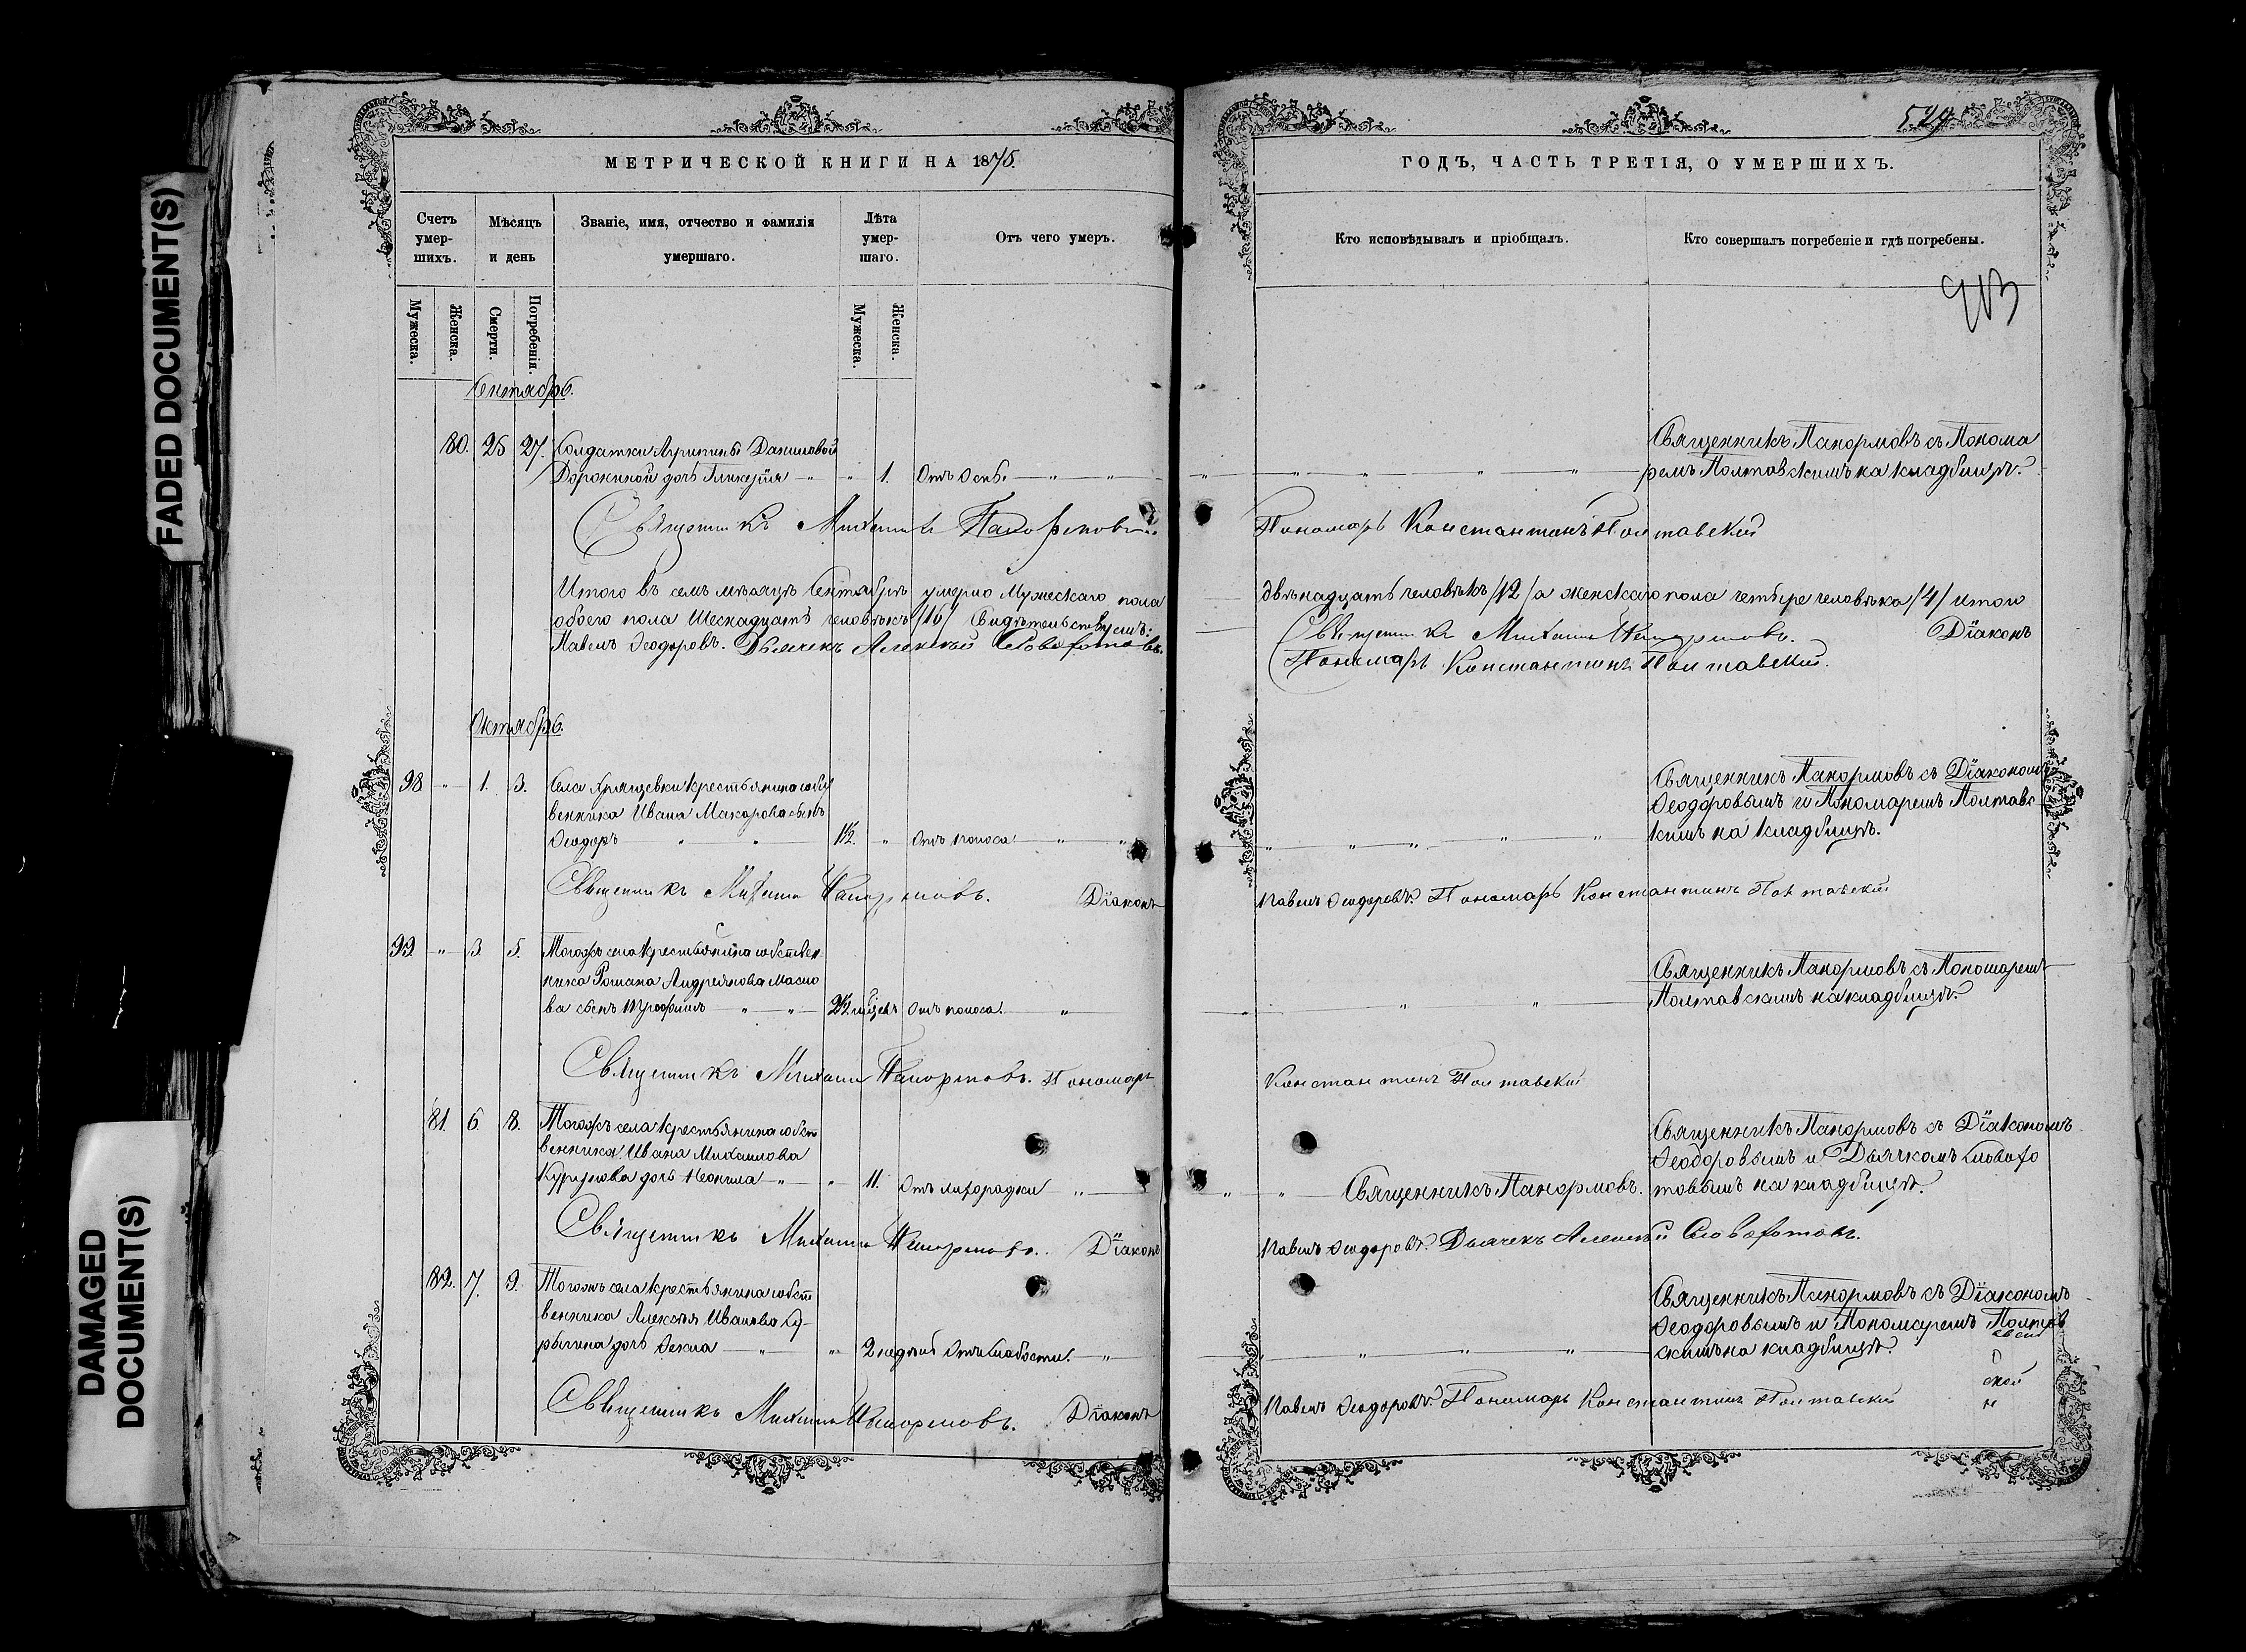 FADED DOCUMENT(S)
DAMAGED
DOCUMENT(S)
МЕТРИЧЕСКОЙ КНИГИ НА 1875.
Счетъ
умер-
шихъ.
Мѣсяцъ
и день
Званіе, имя, отчество и фамилія
умершаго.
Лѣта
умер-
шаго.
Отъ чего умеръ.
Мужеска.
Женска.
Смерти.
Погребенія.
Мужеска.
Женска.
Сентябрь.
80. 25 27. Солдатки Агрипины Даниловой
Дорожиной дочь Гликерія " " 1. Отъ оспы. " "
Священникъ Михаилъ Панормовъ.
Итого въ семъ мѣсяцѣ Сентябрѣ умерло Мужескаго пола
обоего пола Шеснадцать человѣкъ /16/ Свидѣтельствуемъ:
Павелъ Ѳеодоровъ. Дьячекъ Алексѣй Словохотовъ.
Октябрь.
98 " 1. 3. Села крестьянина собст
венника Ивана Макарова сынъ
Ѳеодоръ " " 1½. " Отъ поноса " "
Священникъ Михаилъ Панормовъ. Діаконъ
99. " 3. 5. Тогожъ села крестьянина собствен
ника Романа Андреянова Масло
ва сынъ Трофимъ " " 2½ мѣсяцъ Отъ поноса. "
Священникъ Михаилъ Панормовъ. Пономарь
81. 6. 8. Тогожъ села крестьянина собст
венника Ивана Михаилова
дочь Неонила " " 11. Отъ лихорадки "
Священникъ Михаилъ Панормовъ. Діаконъ
82. 7. 9. Тогожъ села крестьянина собст
венника Алексѣя Иванова Су-
рыгина дочь Ѳекла " " 2 недѣли Отъ слабости. "
Священникъ Михаилъ Панормовъ. Діаконъ
524
ГОДЪ, ЧАСТЬ ТРЕТІЯ, О УМЕРШИХЪ.
Кто исповѣдывалъ и пріобщалъ.
Кто совершалъ погребеніе и гдѣ погребены.
Священникъ Панормовъ съ Понома
ремъ Полтавскимъ на кладбищѣ.
Пономарь Константинъ Полтавскій
двѣнадцать человѣкъ /12/ а женскаго пола четыре человѣка /4/ итого
Священникъ Михаилъ Панормовъ. Діаконъ
Пономарь Константинъ Полтавскій.
Священникъ Панормовъ съ Діакономъ
Ѳеодоровымъ и Пономаремъ Полтавс
кимъ на кладбищѣ.
Павелъ Ѳеодоровъ. Пономарь Константинъ Полтавскій
Священникъ Панормовъ съ Пономаремъ
Полтавскимъ на кладбищѣ.
Константинъ Полтавскій
Священникъ Панормовъ съ Діакономъ
Ѳеодоровымъ и Дьячкомъ Словохо
" " Священникъ Панормовъ. товымъ на кладбищѣ.
Павелъ Ѳеодоровъ. Дьячекъ Алексѣй Словохотовъ.
Священникъ Панормовъ съ Діакономъ
Ѳеодоровымъ и Пономаремъ Полтав
скимъ на кладбищѣ.
Павелъ Ѳеодоровъ. Пономарь Константинъ Полтавскій